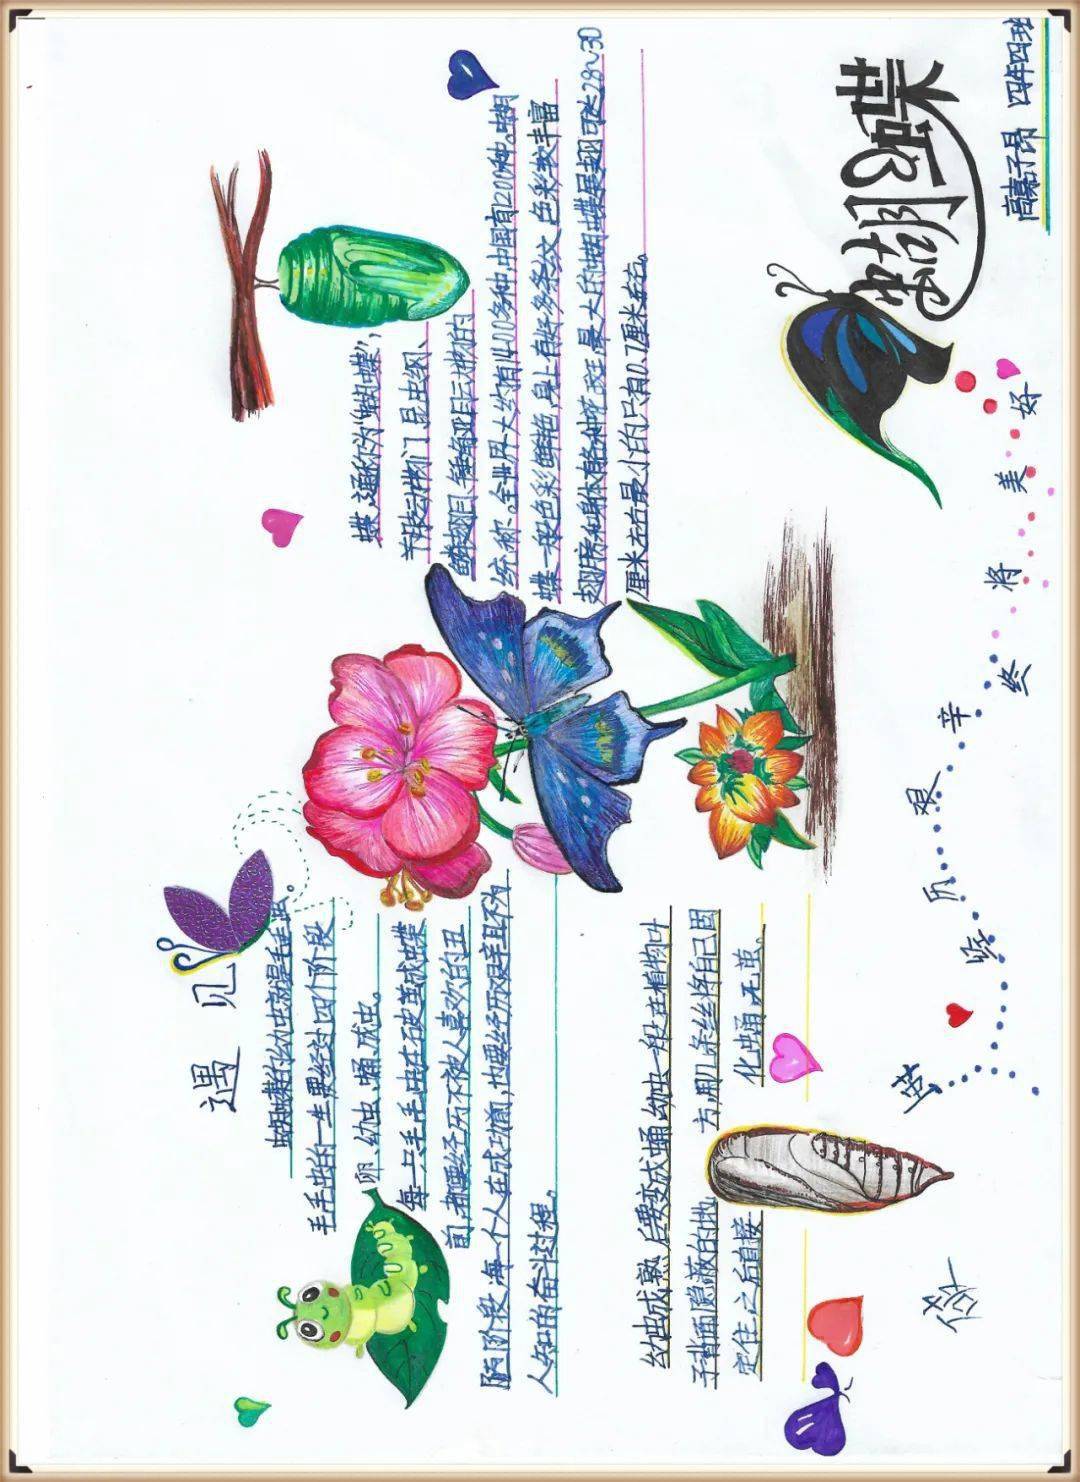 遇见
蝴蝶的幼虫就是毛毛虫。
毛毛虫的一生要经过四个阶段
卵、幼虫、蛹、成虫。
每一只毛毛虫在破茧成蝶
前,都要经历不被人喜欢的丑
陋阶段,每一个人在成功前,也要经历不为
人知的奋斗过程。
幼虫成熟后要变成蛹,幼虫一般在植物叶
子背面隐蔽的地方,用几条丝将自己固
定住,之后直接化蛹,无茧。
蝶,通称为“蝴蝶”,
节肢动物门、昆虫纲、
鳞翅目、锤角亚目动物的
统称。全世界大约有1400多种,中国有1200种。蝴
蝶一般色彩鲜艳,身上有好多条纹,色彩较丰富
翅膀和身体有各种花斑,最大的蝴蝶展翅可达28~30
厘米左右最小的只有0.7厘米左右。
蝴蝶
历艰辛终将美好
高嘉子昂 四年四班